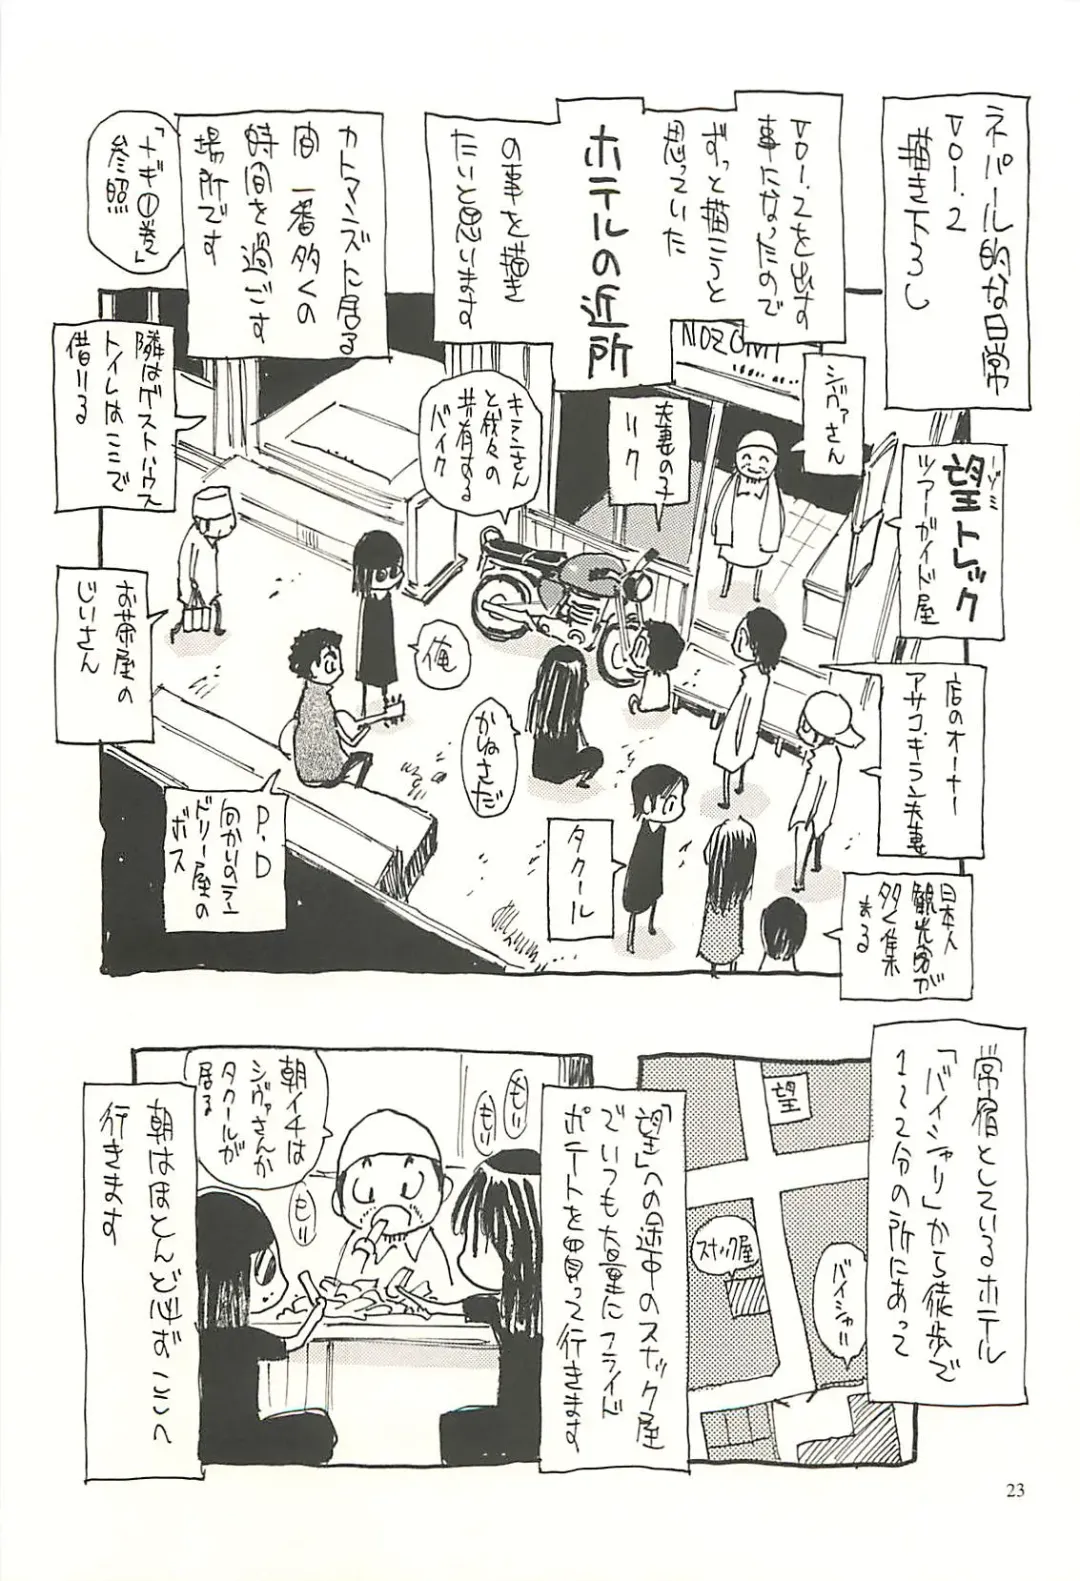 ネパール的な日常
VOl.2
描き下ろし
VOl.2を出す
事になったので
ずっと描こうと
思っていた
ホテルの近所
の事を描き
たいと思います
カトマンズに居る
間 一番多くの
時間を過ごす
場所です
参照
NOZOMI
シヴァさん
夫妻の子
リク
キランさん
と我々の
共有する
バイク
隣はゲストハウス
トイレはここで
借りる
ノゾミ
望トレック
ツアーガイド屋
お茶屋の
じいさん
俺
かねさだ
店のオーナー
アサコ・キラン夫妻
P.D
向かいのラン
ドリー屋の
ボス
タクール
日本人
観光客が
多く集
まる
常宿としているホテル
「バイシャリ」から徒歩で
1〜2分の所にあって
望
スナック屋
バイシャリ
「望」への途中のスナック屋
でいつも大量にフライド
ポテトを買って行きます
もり
もり
もり
朝イチは
シヴァさんか
タクールが
居る
朝はほとんど必ずここへ
行きます
23